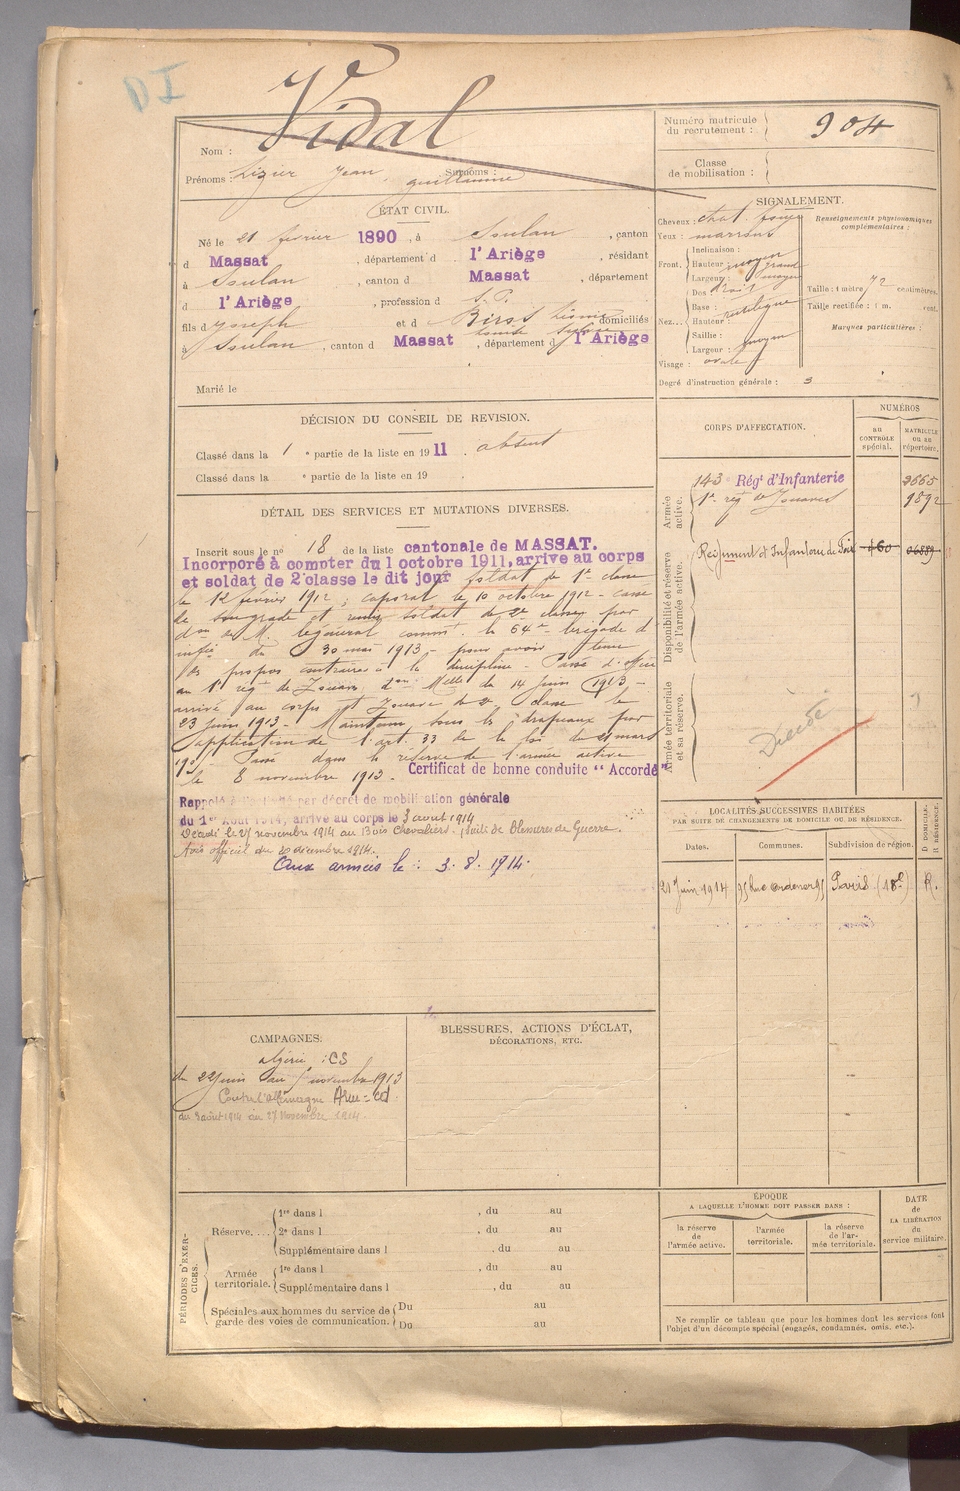 DI
Vidal
Nom :
Prénoms : Lizier Jean Guillaume Surnoms :
Numéro matricule du recrutement : 904
Classe de mobilisation :
ÉTAT CIVIL.
Né le 21 février 1890, à Soulan, canton
d Massat, département d l'Ariège, résidant
à Soulan, canton d Massat, département
d l'Ariège, profession d S. P.
fils d Joseph et d domiciliés
à Soulan, canton d Massat, département d l'Ariège
Marié le
SIGNALEMENT.
Cheveux : chat. foncé
Yeux : marrons
Front. Inclinaison :
Hauteur : moyen
Largeur : moyen
Nez... Dos :
Base :
Hauteur :
Saillie :
Largeur : moyen
Visage : ovale
Renseignements physionomiques complémentaires :
Taille : 1 mètre 72 centimètres.
Taille rectifiée : 1 m. cent.
Marques particulières :
Degré d'instruction générale : 3
DÉCISION DU CONSEIL DE REVISION.
Classé dans la 1 e partie de la liste en 1911. absent
Classé dans la e partie de la liste en 19 .
CORPS D'AFFECTATION.
NUMÉROS
au CONTRÔLE spécial.
MATRICULE ou au répertoire.
Armée active.
143 Régt d'Infanterie 3665
1er reg de Zouaves 1892
Disponibilité et réserve de l'armée active.
Régiment d'Infanterie de Foix 460 06889
Armée territoriale et sa réserve.
Décédé
DÉTAIL DES SERVICES ET MUTATIONS DIVERSES.
Inscrit sous le no 18 de la liste cantonale de MASSAT.
Incorporé à compter du 1 octobre 1911, arrive au corps
et soldat de 2e classe le dit jour soldat de 1e classe
le 12 février 1912 ; caporal le 10 octobre 1912 - cassé
de son grade et remis soldat de 2e classe par
don de M. le général commt. la 64e brigade d
infie du 30 mai 1913 - pour avoir tenu
des propos contraires à la discipline - Passé d'office
au 1er régt de Zouaves don Melle du 14 juin 1913 -
arrivé au corps et Zouave de 2e classe le
23 juin 1913 - Maintenu sous les drapeaux par
application de l'art. 33 de la loi de 21 mars
1905 Passé dans la réserve de l'armée active
le 8 novembre 1913. Certificat de bonne conduite "Accordé"
Rappelé à l'activité par décret de mobilisation générale
du 1er Août 1914, arrive au corps le 3 août 1914
Décédé le 27 novembre 1914 au Bois Chevaliers. Suite de Blessures de Guerre.
Avis officiel du 20 décembre 1914.
Aux armées le : 3. 8. 1914.
LOCALITÉS SUCCESSIVES HABITÉES
PAR SUITE DE CHANGEMENTS DE DOMICILE OU DE RÉSIDENCE.
Dates. Communes. Subdivision de région. D DOMICILE. R RÉSIDENCE.
21 Juin 1914 95 Rue Ordener 95 Paris (18e) R.
CAMPAGNES.
Algérie : CS
du 22 juin au novembre 1913
Contre l'Allemagne
du 3 août 1914 au 27 Novembre 1914.
BLESSURES, ACTIONS D'ÉCLAT,
DÉCORATIONS, ETC.
PÉRIODES D'EXERCICES.
Réserve.... 1re dans l , du au
2e dans l , du au
Supplémentaire dans l , du au
Armée territoriale. 1re dans l , du au
Supplémentaire dans l , du au
Spéciales aux hommes du service de garde des voies de communication. Du au
Du au
ÉPOQUE
A LAQUELLE L'HOMME DOIT PASSER DANS :
la réserve de l'armée active.
l'armée territoriale.
la réserve de l'armée territoriale.
DATE de LA LIBÉRATION du service militaire.
Ne remplir ce tableau que pour les hommes dont les services font
l'objet d'un décompte spécial (engagés, condamnés, omis, etc.).